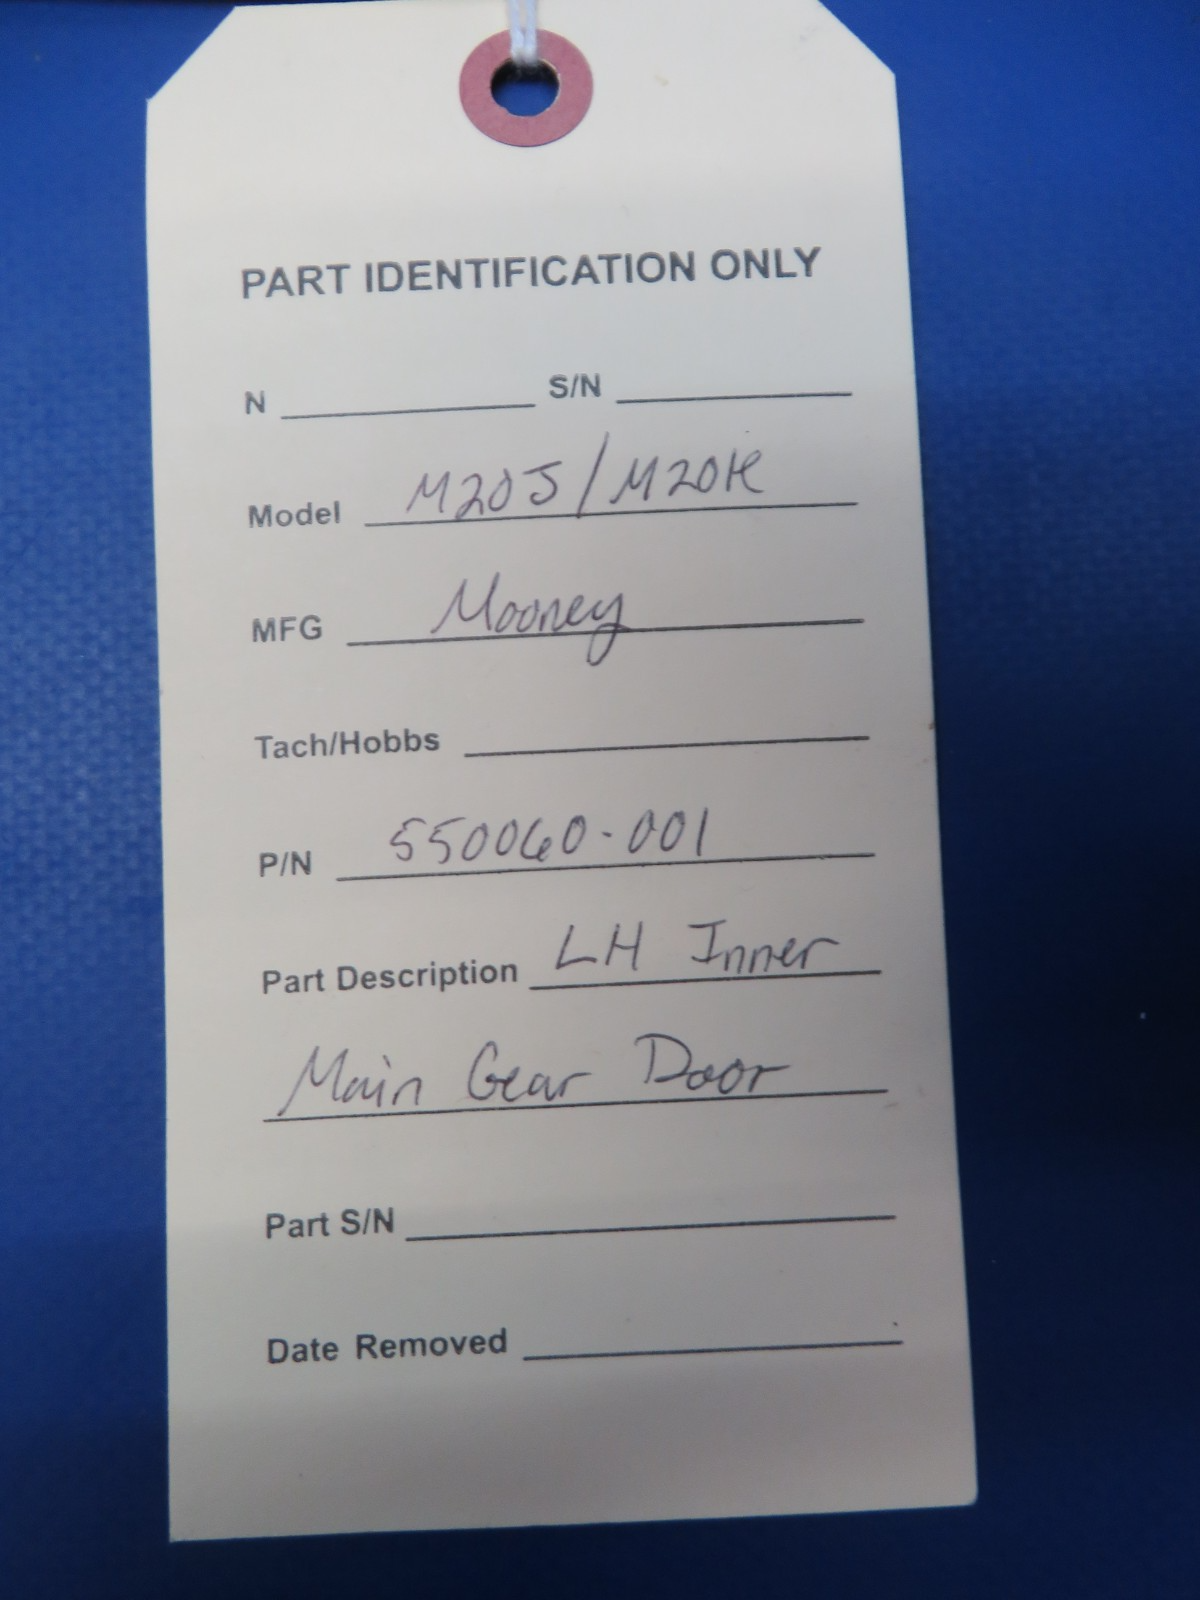 PART IDENTIFICATION ONLY
N S/N
Model M20J/M20K
MFG Mooney
Tach/Hobbs
P/N 550060-001
Part Description LH Inner
Main Gear Door
Part S/N
Date Removed